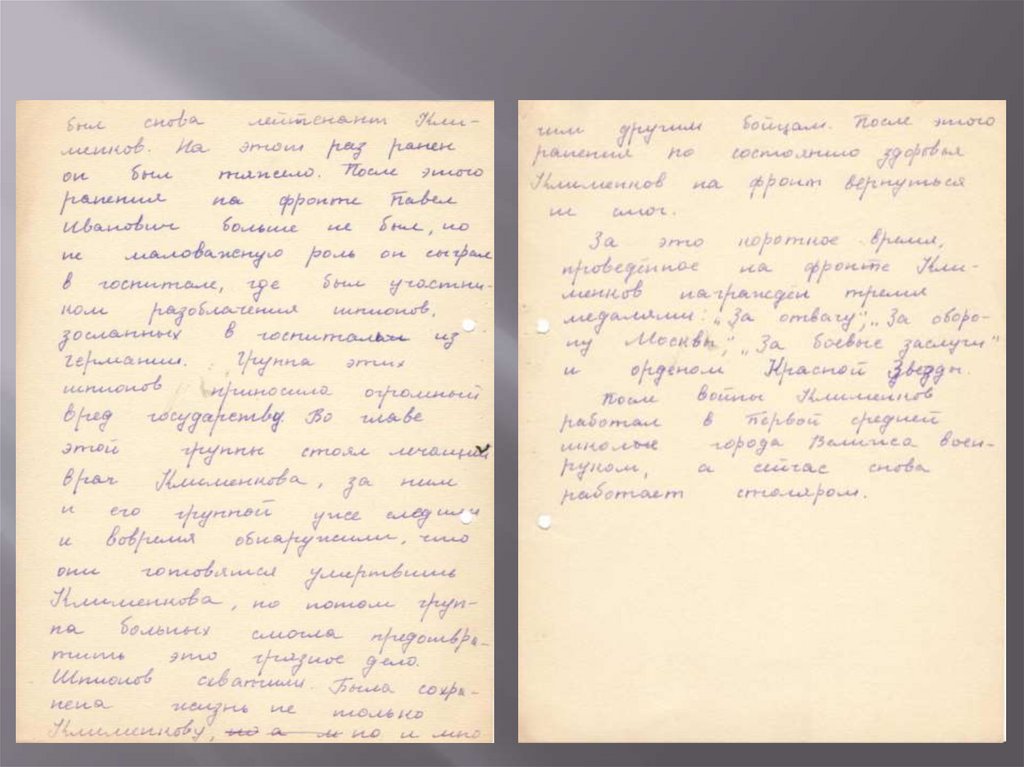 был снова лейтенант Кли-
менков. На этот раз ранен
он был тяжело. После этого
ранения на фронте Павел
Иванович больше не был, но
не маловажную роль он сыграл
в госпитале, где был участни-
ком разоблачения шпионов,
зосланных в госпиталя из
Германии. Группа этих
шпионов приносила огромный
вред государству. Во главе
этой группы стоял лечащий
врач Клименкова, за ним
и его группой уже следили
и вовремя обнаружили, что
они готовятся умертвить
Клименкова, но потом груп-
па больных смогла предотвра-
тить это грязное дело.
Шпионов схватили. Была сохра-
нена жизнь не только
Клименкову, но и мно
гим другим бойцам. После этого
ранения по состоянию здоровья
Клименков на фронт вернуться
не смог.
За это короткое время,
проведённое на фронте Кли-
менков награждён тремя
медалями: „За отвагу", „За оборо-
ну Москвы", „За боевые заслуги"
и орденом Красной Звезды.
После войны Клименков
работал в Первой средней
школые города Велижа воен-
руком, а сейчас снова
работает столяром.